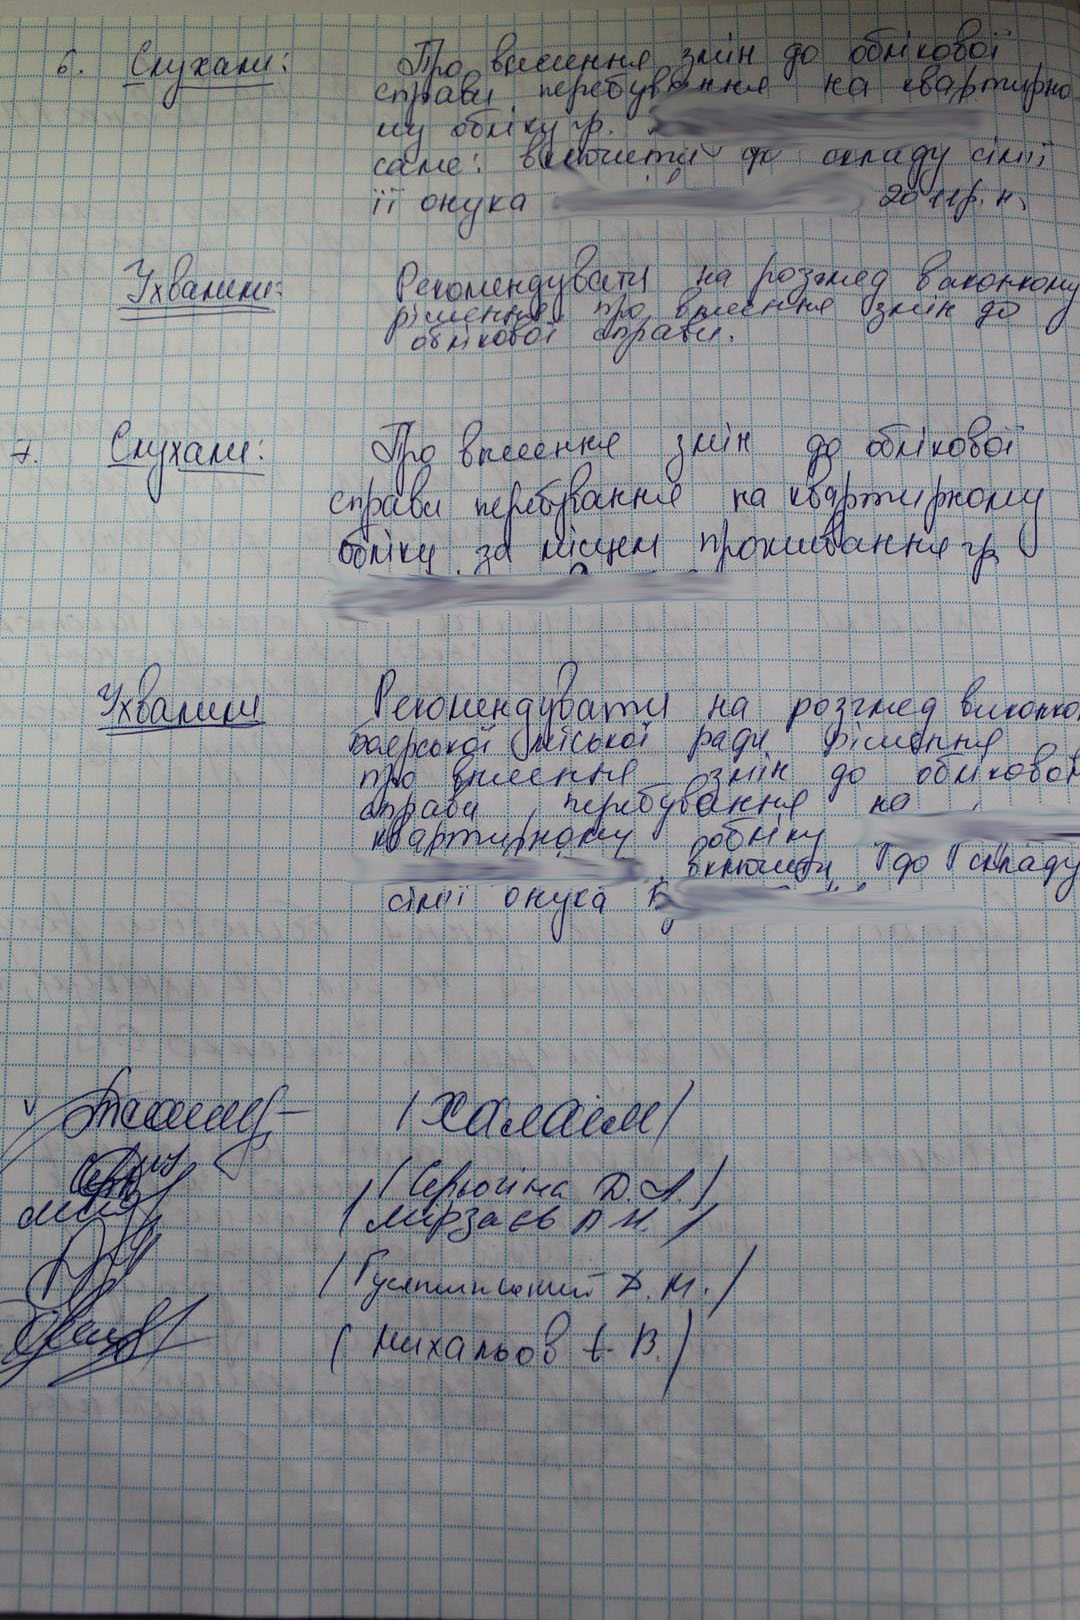 6. Слухали: Про внесення змін до облікової
справи перебування на квартирно
му обліку гр.
саме: включити до складу сім'ї
її онука 2011р.н.
Ухвалили: Рекомендувати на розгляд виконкому
рішення про внесення змін до
облікової справи.
7. Слухали: Про внесення змін до облікової
справи перебування на квартирному
обліку за місцем проживання гр.
Ухвалили Рекомендувати на розгляд виконко
Боярської міської ради рішення
про внесення змін до облікової
справи перебування на
квартирному обліку
включити до складу
сім'ї онука
/Халаім/
/Серьогіна Д.А/
/Мирзаєв А М./
/ Д.М./
/Михальов Є.В./